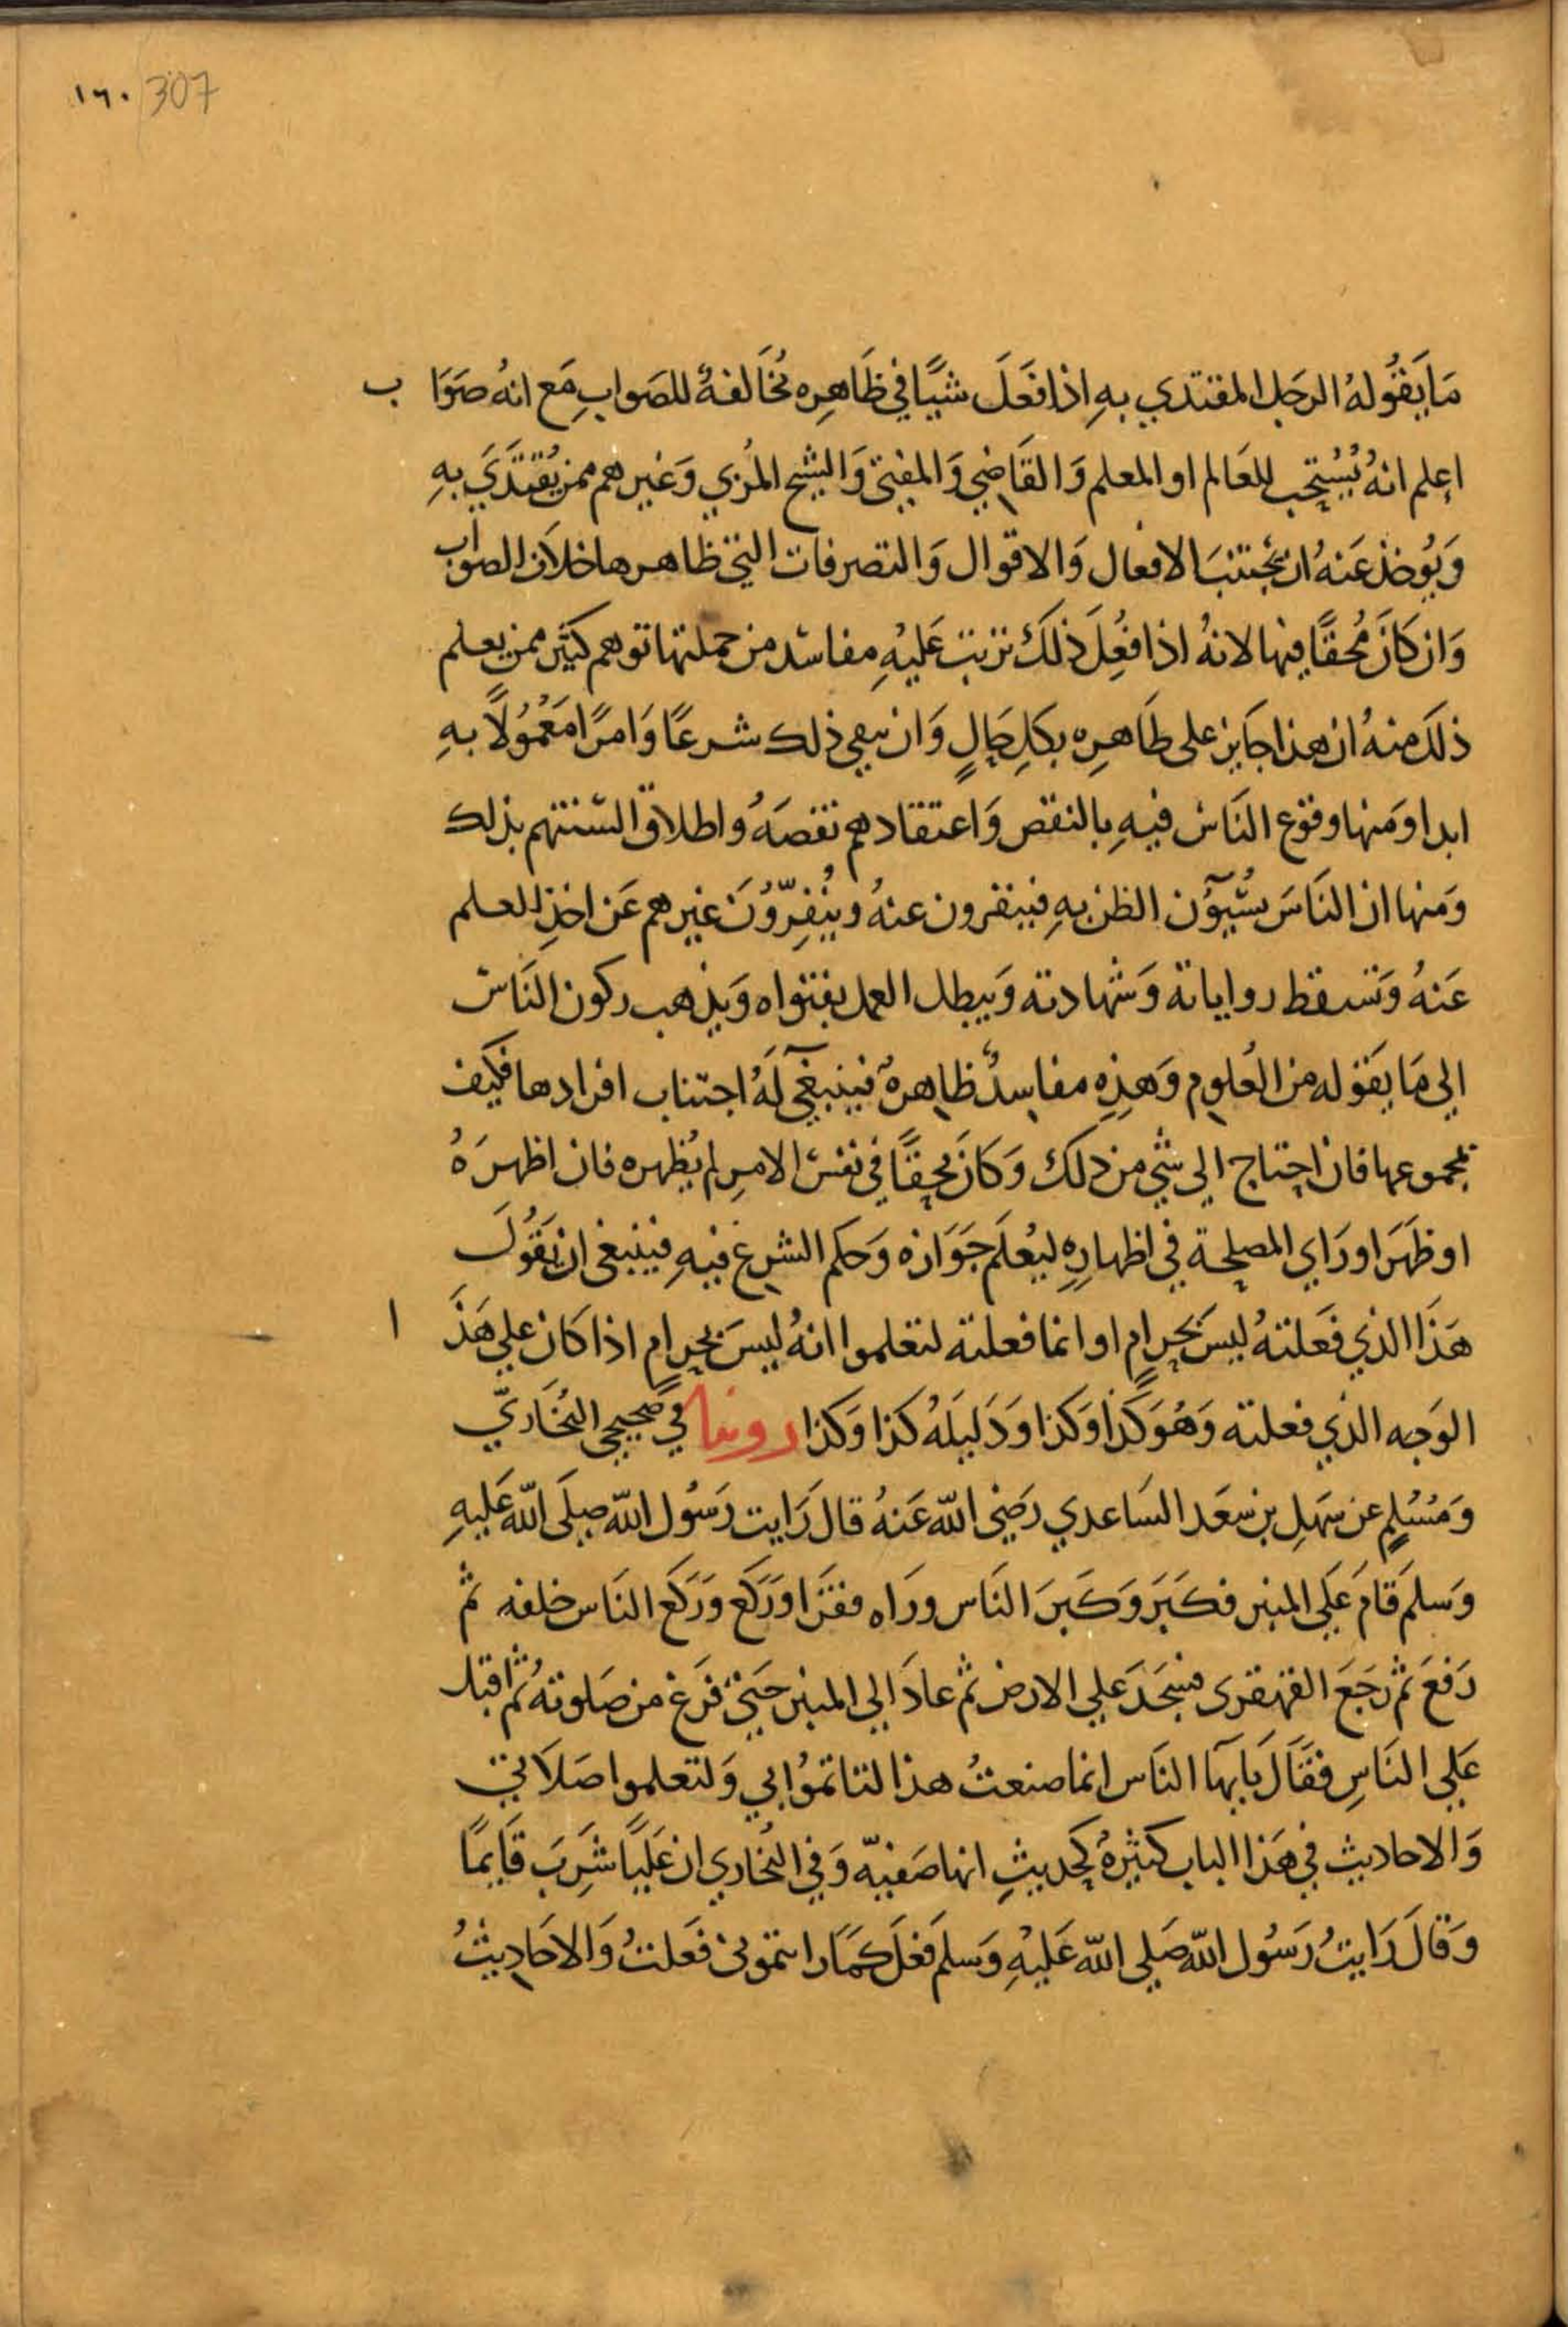 ١٦٠/307
مَا يَقُولُهُ الرجَل المقتدي بهِ اذا فعَلَ شيًا في ظَاهِره مُخَالفةٌ للصَوابِ مَع انهُ صَوَاب
اعلم انهُ يُسْتحب للعَالم او المعلم وَالقَاضِي وَالمفتي وَالشيخ المُربي وَغيرهم ممن يُقتَدَي بهِ
وَيُوخذ عَنهُ ان يجتنبَ الافعال وَالاقوال وَالتصرفات التي ظاهرها خلاف الصواب
وَان كانَ مُحقًا فيها لانهُ اذا فعُلِ ذلكَ ترتبَ عَليْهِ مفاسد من جملتها توهم كثير ممن يعلم
ذلكَ منهُ ان هذا جَايز على ظَاهِرِه بكلِ حَالٍ وَان يبقي ذلك شرعًا وَامرًا مَعْمُولًا بهِ
ابدا وَمنها وقوع النَاس فيهِ بالنقص وَاعتقادهم نقصَهُ واطلاق السنتهم بذلك
وَمنها ان النَاسَ يسُيؤُن الظن بهِ فينفرون عنهُ ويُنفِّروُنَ غيرهم عَن اخذِ العلم
عَنهُ وَتسقط رواياته وَشهادته وَيبطل العمل بفتواه وَيذهب ركون النَاس
الي مَا يَقوله من العُلوم وَهذِهِ مفاسدُ ظاهرهٌ فينبغي لَهُ اجتناب افرادها فكيف
بمجموعها فان احتاج الي شي من ذلك وَكانَ محقًا في نفس الامرِ لم يُظهره فان اظهرَهُ
او ظهَرَ او رَاي المصلحة في اظهارِهِ ليُعلَم جَوَازه وَحكم الشرع فيهِ فينبغي ان يَقُولَ
هَذَا الذي فَعَلتهُ ليسَ بحرامٍ او انما فعلته لتعلموا انهُ ليسَ بحرامٍ اذا كان علي هَذَا
الوَجه الذي فعلته وَهُوَ كذا وَكذا وَدَليلَهُ كذا وَكذا روينا في صَحيحي البُخَاريّ
وَمُسْلمٍ عن سَهلِ بن سعَد السَاعدي رَضِي الله عَنهُ قالَ رَايت رَسُول الله صلَى الله عَليهِ
وَسلمَ قامَ عَلَي المنبر فكبَرَ وَكَبرَ النَاس ورَاه فقرَا وَرَكعَ وَرَكَع النَاس خلفه ثم
رَفعَ ثم رَجَعَ القهقرى فسَجَدَ علي الارض ثم عادَ الي المنبر حَتي فرَغ من صَلوته ثُم اقبل
عَلي النَاسِ فقَالَ يَايهَا النَاس انما صنعتُ هذا لتاتموُا بي وَلتعلموا صَلَاتي
وَالاحاديث في هَذا الباب كثيرهٌ كحديثِ انها صَفيهّ وَفي البُخاري ان عَليًا شَرِبَ قَايمًا
وَقالَ رَايتُ رَسُول الله صَلي الله عَليْهِ وَسلمَ فعَلَ كمَا رايتموني فَعَلتُ وَالاحَاديثُ